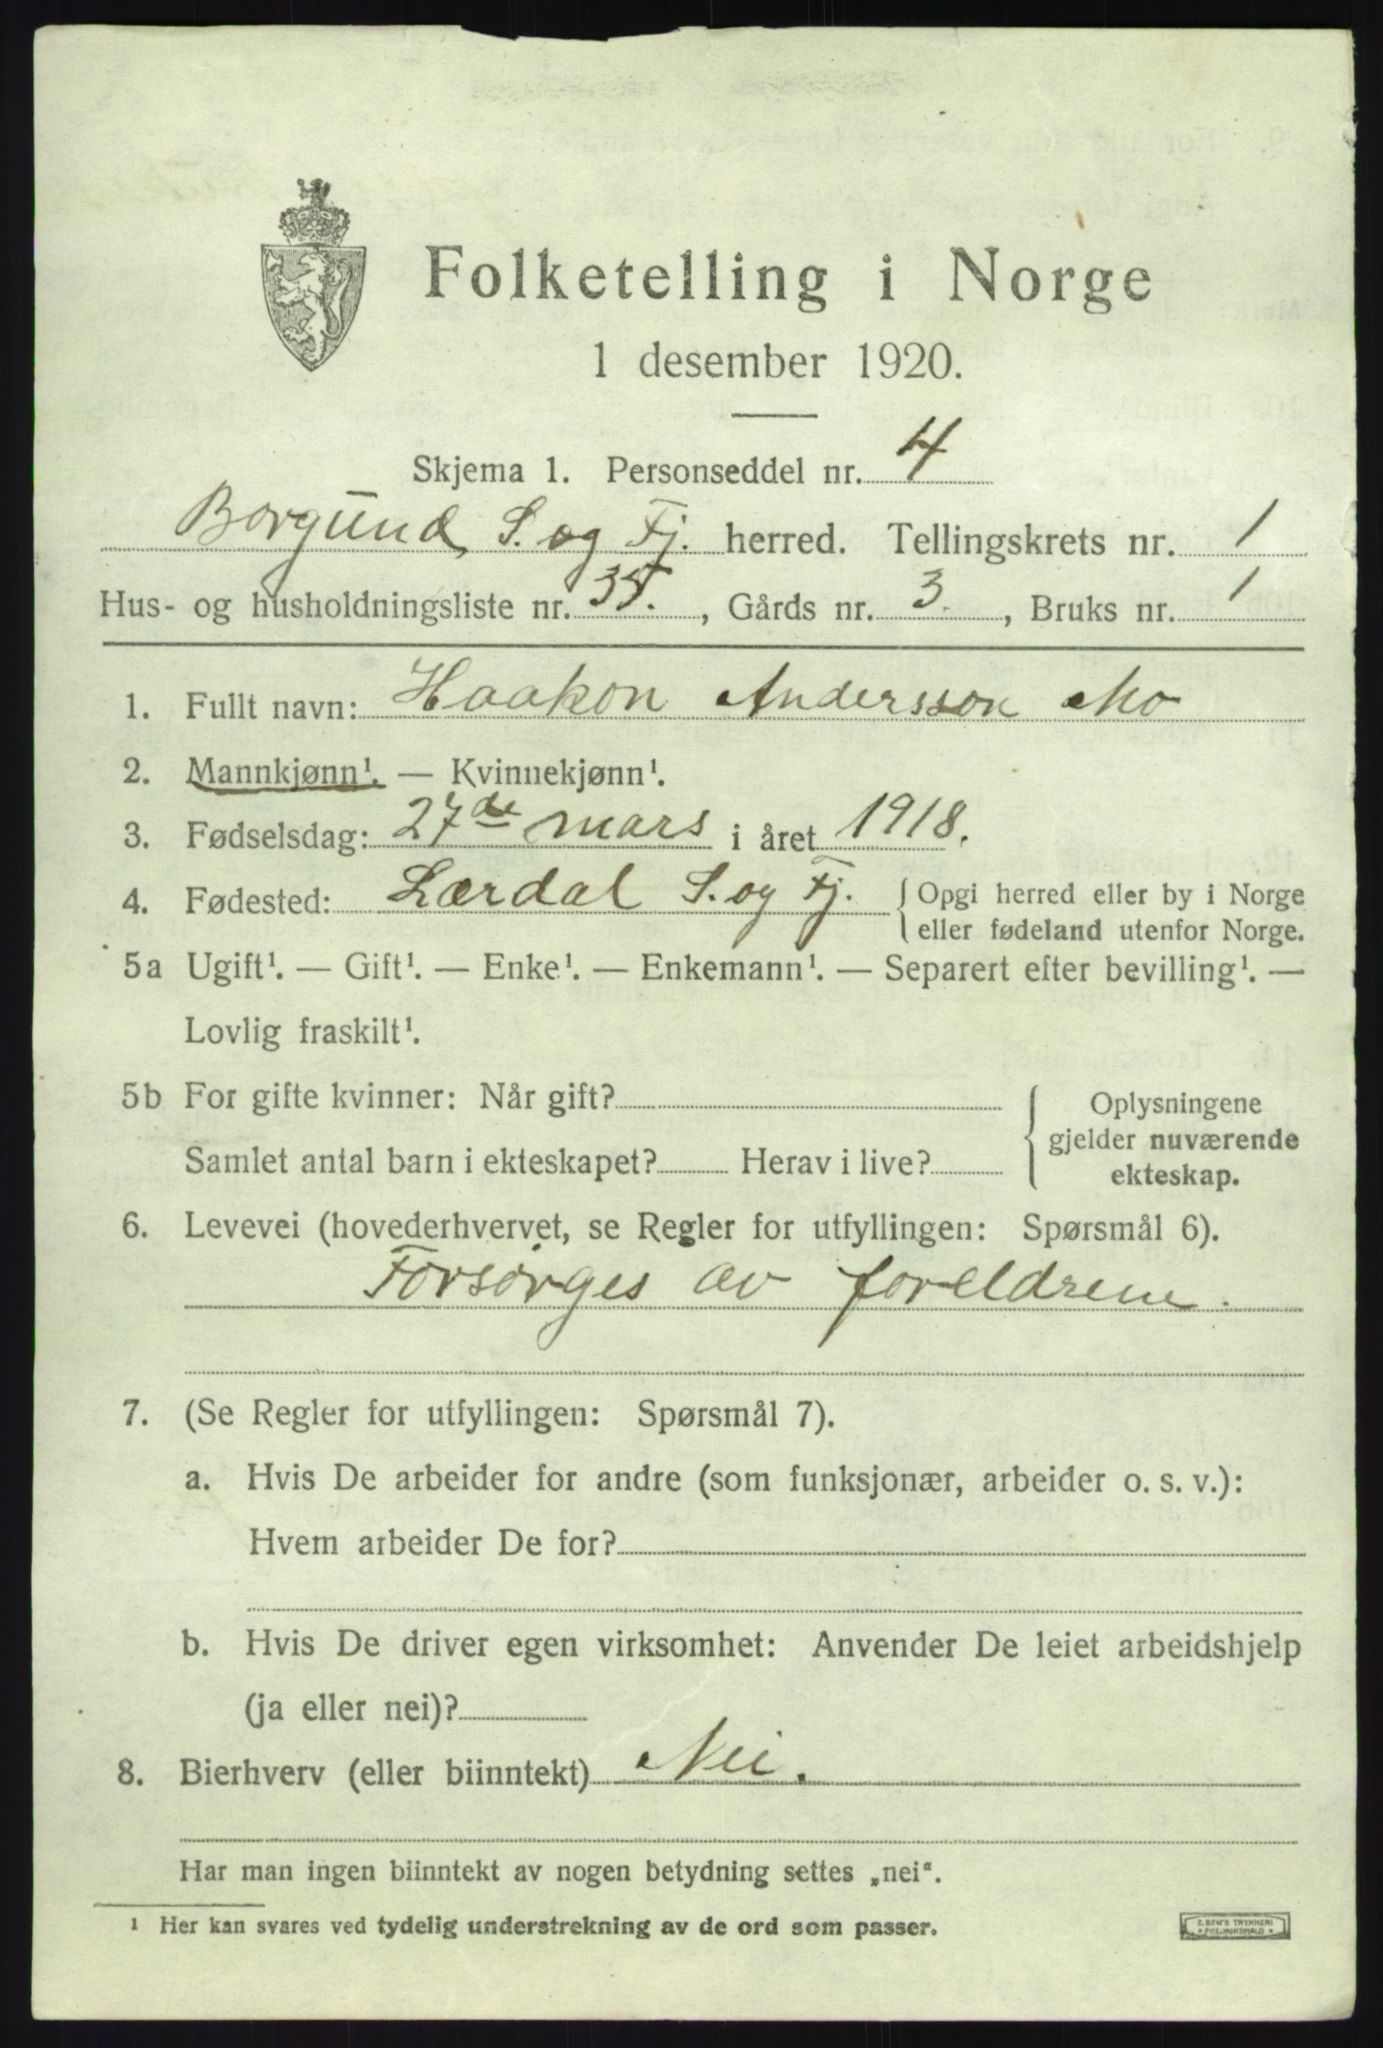 Folketelling i Norge
1 desember 1920.
Skjema 1. Personseddel nr. 4
Borgund, S. og Fj. herred. Tellingskrets nr. 1
Hus- og husholdningsliste nr. 35., Gårds nr. 3., Bruks nr. 1
1. Fullt navn: Haakon Andersson Mo
2. Mannkjønn¹. — Kvinnekjønn¹.
3. Fødselsdag: 27de mars i året 1918.
4. Fødested: Lærdal S. og Fj. { Opgi herred eller by i Norge
eller fødeland utenfor Norge.
5a Ugift¹. — Gift¹. — Enke¹. — Enkemann¹. — Separert efter bevilling¹. —
Lovlig fraskilt¹.
5b For gifte kvinner: Når gift?
Samlet antal barn i ekteskapet? Herav i live?
{ Oplysningene
gjelder nuværende
ekteskap.
6. Levevei (hovederhvervet, se Regler for utfyllingen: Spørsmål 6).
Forsørges av foreldrene.
7. (Se Regler for utfyllingen: Spørsmål 7).
a. Hvis De arbeider for andre (som funksjonær, arbeider o. s. v.):
Hvem arbeider De for?
b. Hvis De driver egen virksomhet: Anvender De leiet arbeidshjelp
(ja eller nei)?
8. Bierhverv (eller biinntekt) Nei.
Har man ingen biinntekt av nogen betydning settes „nei“.
¹ Her kan svares ved tydelig understrekning av de ord som passer.
TRYKKERI